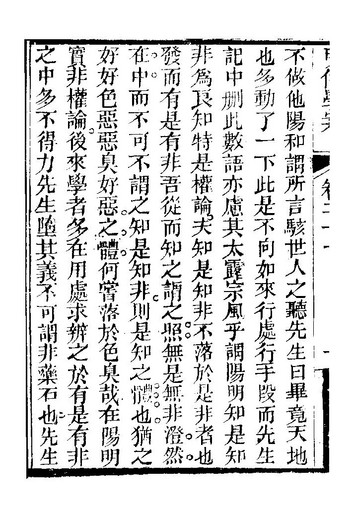 不做他陽和謂所言駭世人之聽先生曰畢竟天地
也多動了一下此是不向如來行處行手段而先生
記中刪此數語亦慮其太露宗風乎謂陽明知是知
非爲良知特是權論夫知是知非不落於是非者也
發而有是有非吾從而知之謂之照無是無非澄然
在中而不可不謂之知是知非則是知之體也猶之
好好色惡惡臭好惡之體何嘗落於色臭哉在陽明
實非權論後來學者多在用處求辨之於有是有非
之中多不得力先生墮其義不可謂非藥石也先生